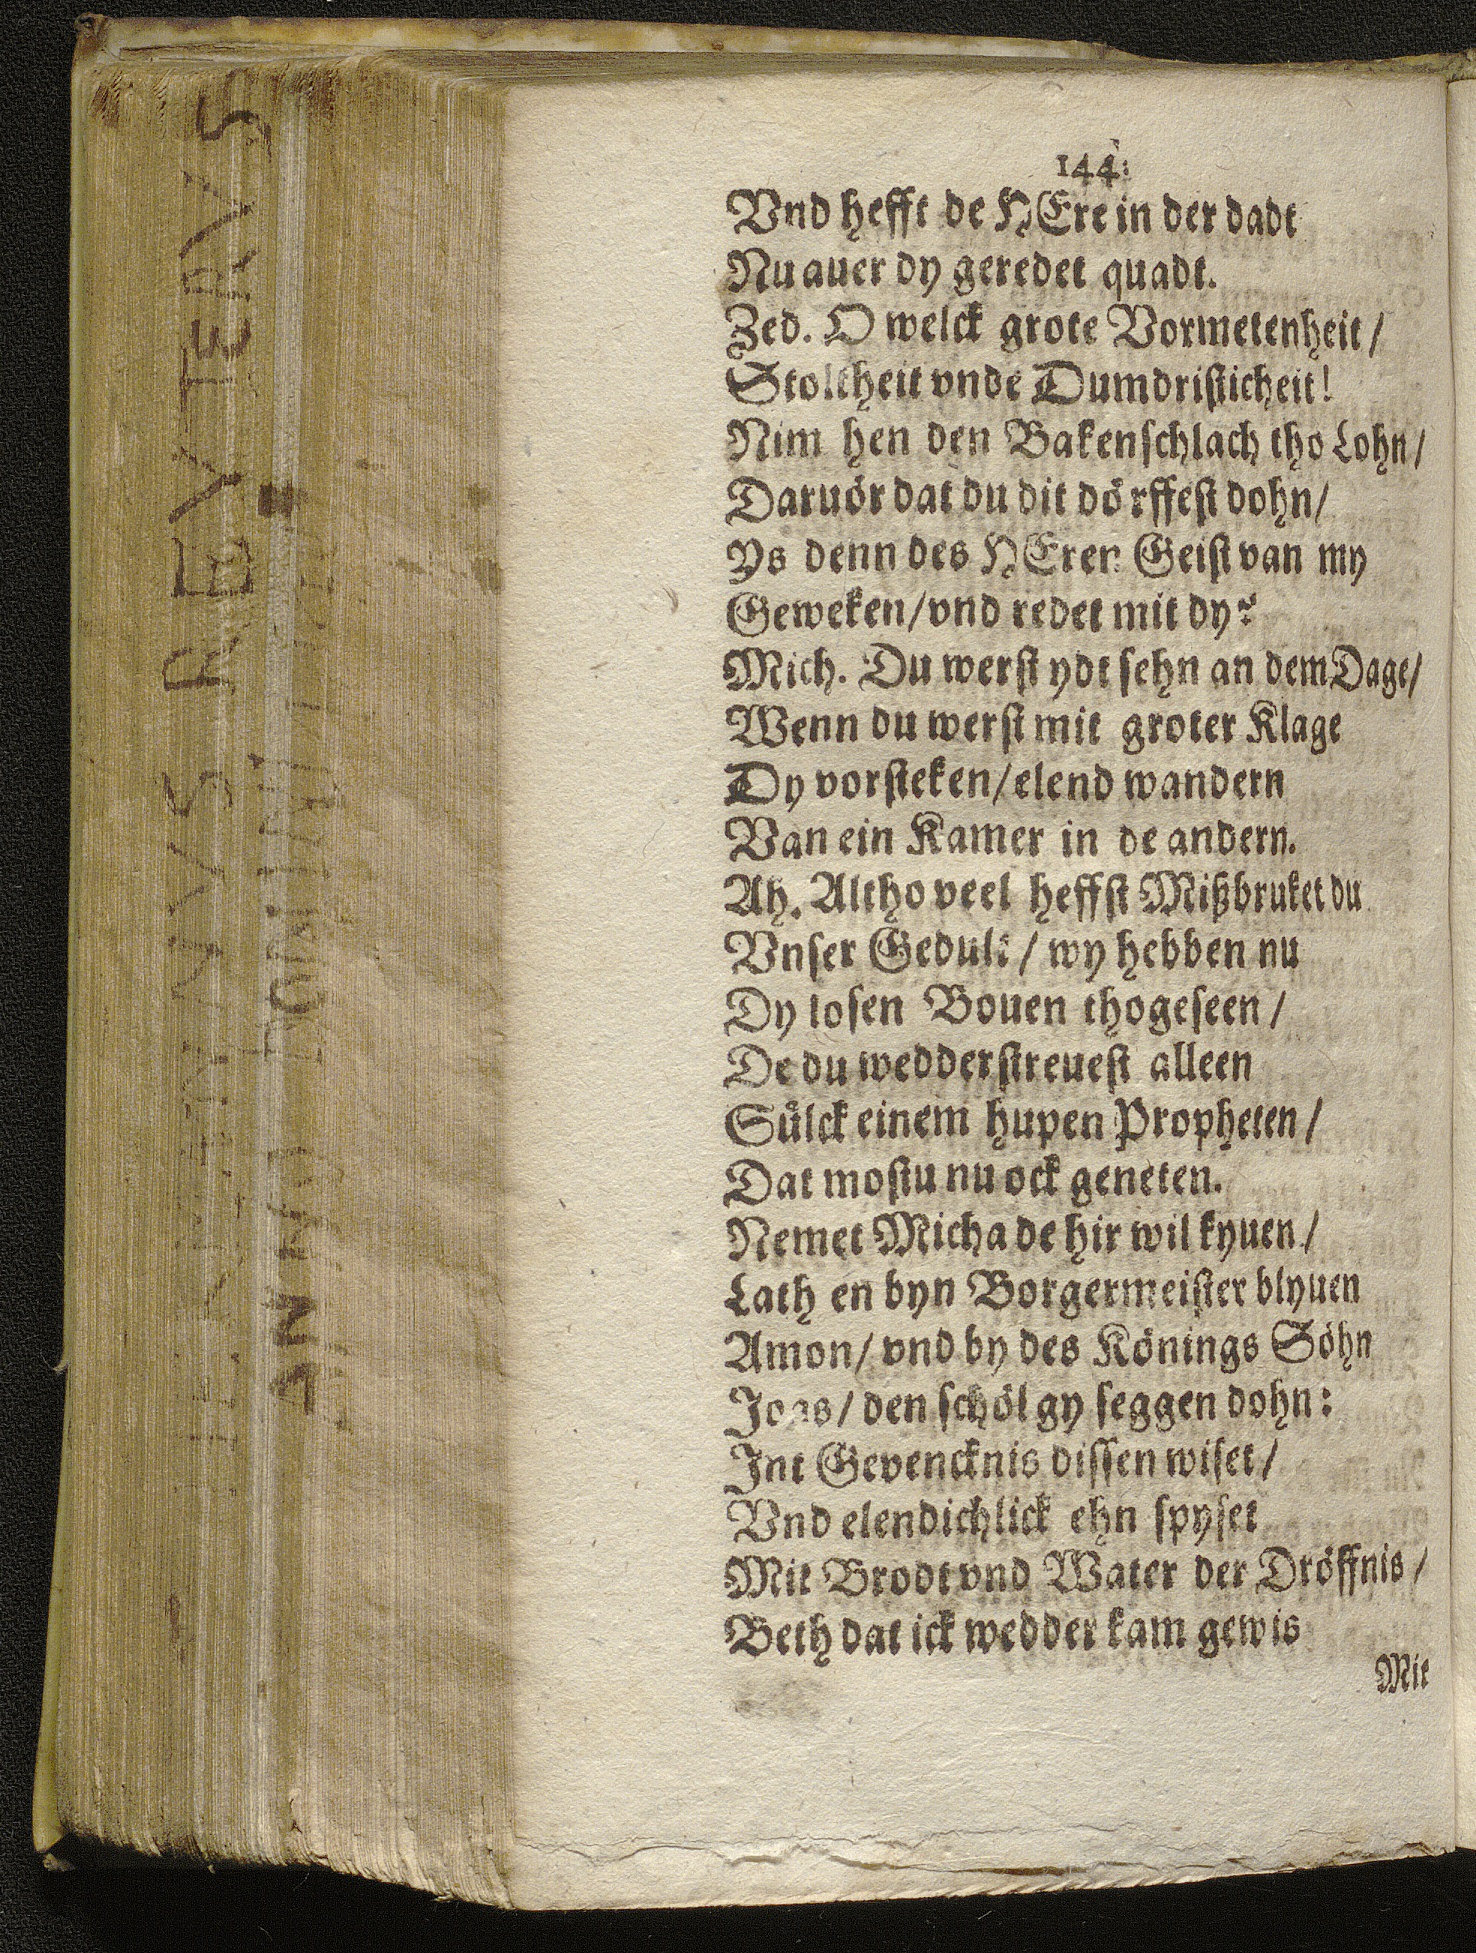 144.
Vnd hefft de HEre in der dadt
Nu auer dy geredet quadt.
Zed. O welck grote Vormetenheit /
Stoltheit vnde Dumdristicheit!
Nim hen den Bakenschlach tho Lohn /
Daruör dat du dit dörffest dohn /
Ys denn des HEren Geist van my
Geweken / vnd redet mit dy?
Mich. Du werst ydt sehn an dem Dage /
Wenn du werst mit groter Klage
Dy vorsteken / elend wandern
Van ein Kamer in de andern.
Ah. Altho veel heffst Mißbruket du
Vnser Gedult / wy hebben nu
Dy losen Bouen thogeseen /
De du wedderstreuest alleen
Sülck einem hupen Propheten /
Dat mostu nu ock geneten.
Nemet Micha de hir wil kyuen /
Lath en byn Borgermeister blyuen
Amon / vnd by des Könings Söhn
Joas / den schöl gy seggen dohn:
Int Gevencknis dissen wiset /
Vnd elendichlick ehn spyset
Mit Brodt vnd Water der Dröffnis /
Beth dat ick wedder kam gewis
Mit
REVTERVS
ANNO